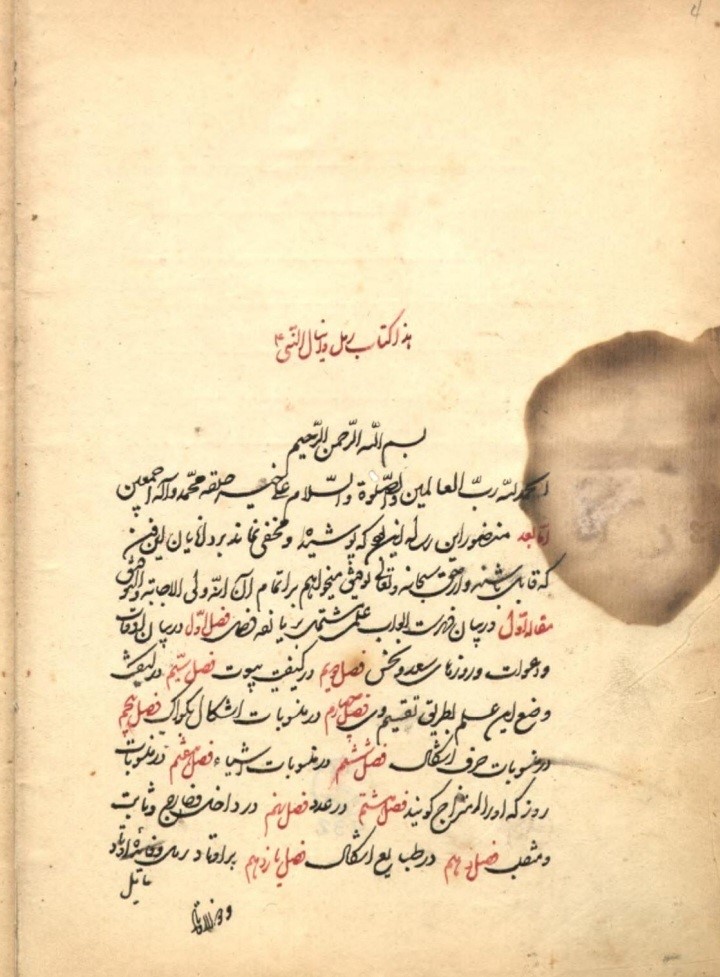 هذا کتاب رمل دانیال النبی ع
بسم الله الرحمن الرحیم
الحمدلله ربّ العالمین والصّلوة والسّلام علی خیر خلقه محمّد وآله اجمعین
امّا بعد این رساله که پوشیده و مخفی نماند بر دانایان این فن
که قابل باشند و از حق سبحانه وتعالی توفیق میخواهم بر اتمام آن انه ولی الاجابة
مقاله اوّل در بیان فهرست ابواب علم مشتمل بر یازده فصل فصل اوّل در بیان اوقات
و دعوات و روزهای سعد و نحس فصل دویم در کیفیت بیوت فصل سیّم در کیفیت
وضع این علم بطریق تقسیم وی فصل چهارم در منسوبات اشکال بکواکب فصل پنجم
در منسوبات حرف اشکال فصل ششم در منسوبات اشیاء فصل هفتم در منسوبات
روز که او را مزاج کویند فصل هشتم در عدد فصل نهم در داخل و خارج و ثابت
و منقلب فصل دهم در طبایع اشکال فصل یازدهم بر اوتاد رمل
مایل